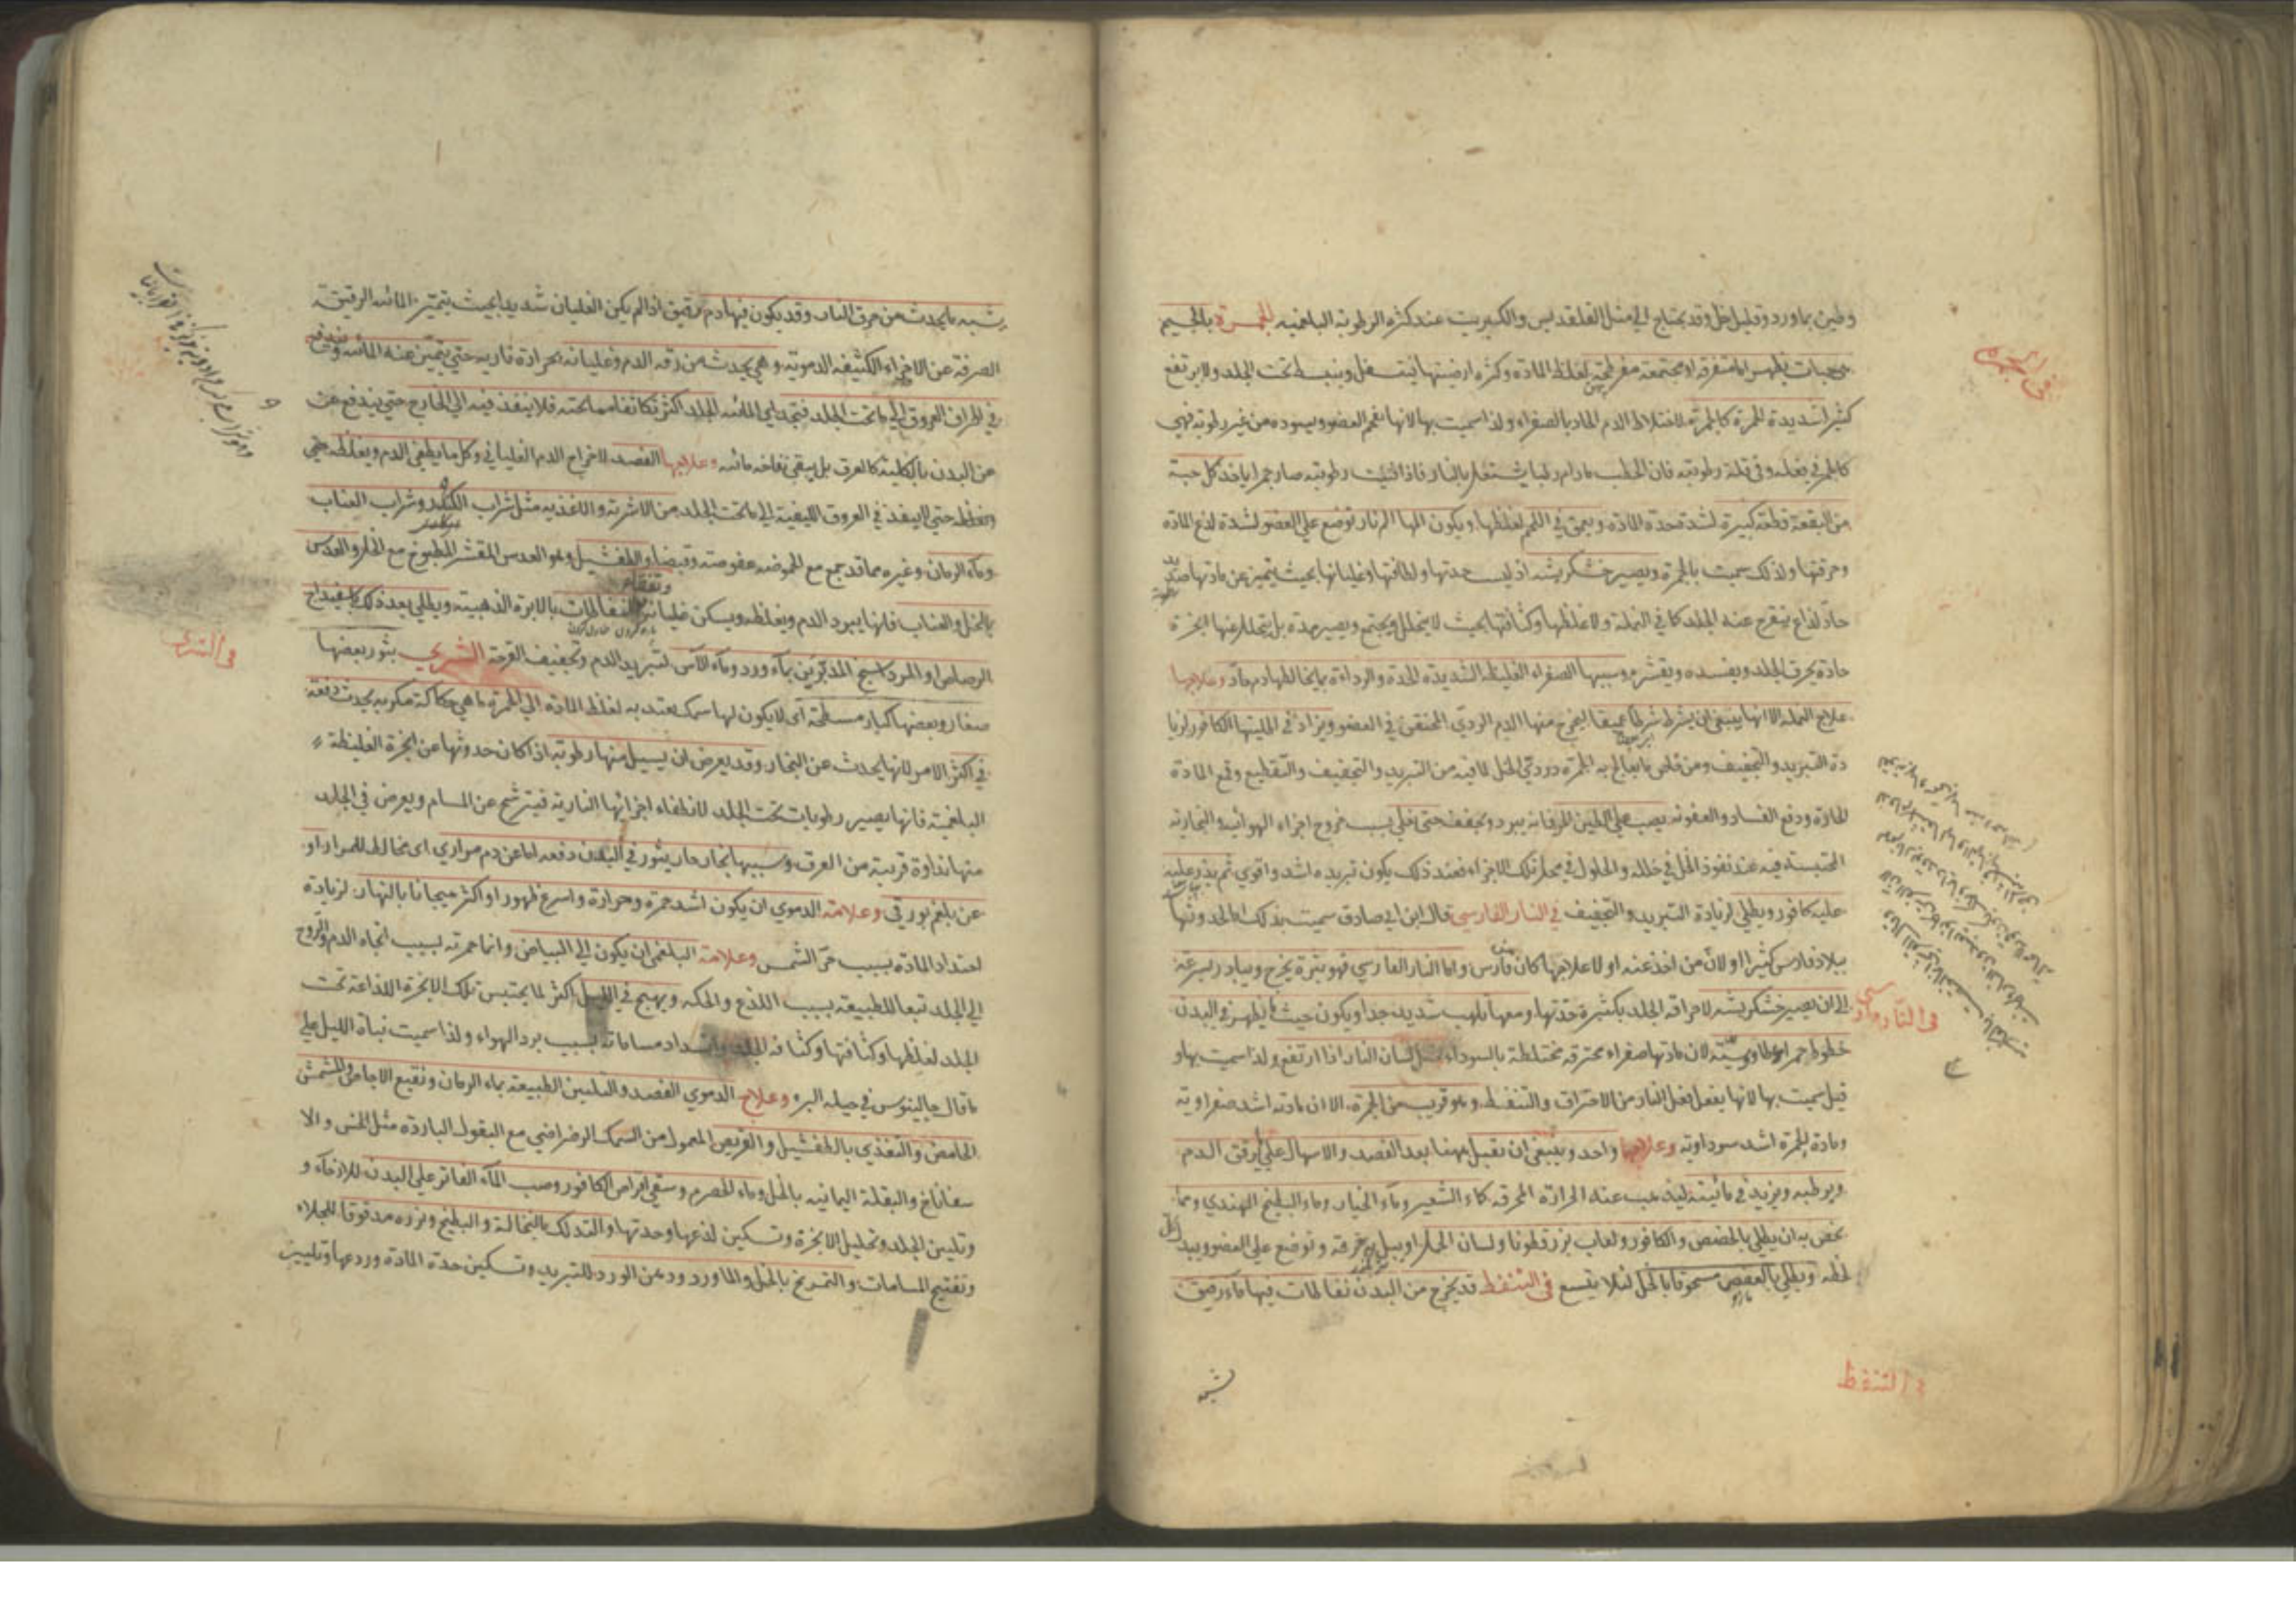 وطين بماورد وقليل خل وقد يحتاج الي مثل القلقديس والكبريت عند كثرة الرطوبة البلغميه الجمرة بالجيم
هي حبات يظهر اما متفرقة او مجتمعة مفرطحة لغلظ المادة وكثرة ارضيتها فيتسفل وينبسط تحت الجلد ولا يرتفع
كثيرا شديدة الحمرة كالجمرة لاختلاط الدم الحاد بالصفراء ولذا سميت بها لانها يفحم العضو ويسوده من غير رطوبة فهي
كالجمر في فعله وفي قلة رطوبته فان الحطب مادام رطبا يشتعل بالنار فاذا افنيت رطوبته صار جمرا ياخذ كل حبة
من البقعة قطعة كبيرة لشدة حدة المادة ويعمق في اللحم لغلظها ويكون المها الم نار توضع علي العضو لشدة لذع المادة
وحرقتها ولذلك سميت بالجمرة ويصير خشكريشه اذ ليس حدتها ولطافتها وغليانها بحيث يتميز عن مادتها
حاد لذاع يتقرح عنه الجلد كما في النملة ولا غلظها وكثافتها بحيث لا يتحلل ويجتمع ويصير مدة بل يتحلل عنها ابخرة
حادة يحرق الجلد ويفسده ويقشره وسببها الصفراء الغليظة الشديدة الحدة والرداءة بما يخالطها دم حاد وعلاجها
علاج النملة الا انها ينبغي ان يشرط شرطا عميقا ليخرج منها الدم الردي المحتقن في العضو ويزاد في اطليتها الكافور لزيا
دة التبريد والتجفيف ومن خاص ما يعالج به الجمرة دردي الخل لما فيه من التبريد والتجفيف والتقطيع وقمع المادة
الحارة ودفع الفساد والعفونه يصب علي الطين الحر فانه يبرد ويجفف حتى يغلي بسبب خروج اجزاء الهوائيه والبخاريه
المحتبسة فيه عند نفوذ الخل في خلله والحلول في محل تلك الاجزاء فعند ذلك يكون تبريده اشد واقوي ثم يذر عليه
عليه كافور ويطلي لزيادة التبريد والتجفيف في النار الفارسي قال ابن ابي صادق سميت بذلك اما لحدوثها
ببلاد فارس كثيرا او لان من اخذ عنه اولا علاجها كان من فارس واما النار الفارسي فهو بثرة يخرج ويبادر بسرعة
الي ان يصير خشكريشه لاحراقه الجلد بكثرة حدتها ومعها تلهب شديد جدا ويكون حيث ما يظهر في البدن
خطوط حمر لان مادتها صفراء محترقة مختلطة بالسوداء مثل لسان النار اذا ارتفع ولذا سميت بها و
قيل سميت بها لانها يفعل فعل النار من الاحتراق والتنفط وهو قريب من الجمرة الا ان مادته اشد صفراوية
ومادة الجمرة اشد سوداوية وعلاجهما واحد وينبغي ان يقبل ههنا بعد الفصد والاسهال علي ما يرقق الدم
ويرطبه ويزيد في مائيته ليذهب عنه الحرارة المحرقة كماء الشعير وماء الخيار وماء البطيخ الهندي ومما
يخص به ان يطلي بالحضض والكافور ولعاب بزرقطونا ولسان الحمل او يبل به خرقة وتوضع علي العضو ويبدل
لحظه ويطلي بالعفص مسحوقا بالخل لئلا يتسع في التنفط قد يخرج من البدن نفاطات فيها ماء رقيق
في الجمرة
في النار الفارسي
في التنفط
شبه
يشبه ما يحدث من حرق النار وقد يكون فيها دم رقيق اذا لم يكن الغليان شديدا بحيث يتميز المائيه الرقيقة
الصرفة عن الاجزاء الكثيفه الدمويه وهي يحدث من رقه الدم وغليانه بحرارة نارية حتي يتميز عنه المائيه ويندفع
في اطراف العروق الي ما تحت الجلد فتجد اي المائيه الجلد اكثر تكاثفا مما تحته فلا ينفذ فيه الي الخارج حتي يندفع عن
عن البدن بالكلية كالعرق بل يبقي نفاخه مائيه وعلاجها الفصد لاخراج الدم الغلياني وكل ما يطفي الدم ويغلظه حتي
ويغلظه حتي لا ينفذ في العروق الليفية الي ما تحت الجلد من الاشربة والاغذيه مثل شراب وشراب العناب
وماء الرمان وغيره مما قد يجمع مع الحموضه عفوصة وقبضا والطفشيل وهو العدس المقشر المطبوخ مع الخل والعدس
بالخل والعناب فانها يبرد الدم ويغلظه ويسكن غليانه وتفقاء النفاطات بالابرة الذهبية ويطلي بعد ذلك باسفيداج
الرصاص او المرداسنج المدبرين بماء ورد وماء الآس لتبريد الدم وتجفيف القرحة الشري بثور بعضها
صغار وبعضها كبار مسطحة اي لا يكون لها سمك يعتد به لغلظ المادة الي الحمرة ما هي حكاكة مكربه يحدث دفعة
في اكثر الامر لانها يحدث عن البخار وقد يعرض ان يسيل منها رطوبة اذا كان حدوثها عن ابخرة الغليظة
البلغمية فانها يصير رطوبات تحت الجلد لانطفاء اجزائها النارية فيترشح عن المسام ويعرض في الجلد
منها نداوة قريبة من العرق وسببها بخار حار يثور في البدن دفعة اما عن دم مراري اي مخالط للمرار او
عن بلغم بورقي وعلامة الدموي ان يكون اشد حمرة وحرارة واسرع ظهورا واكثر هيجانا بالنهار لزيادة
احتداد المادة بسبب حر الشمس وعلامة البلغمي ان يكون الي البياض وانما حمرته بسبب اتجاه الدم والروح
الي الجلد تبعا للطبيعة بسبب اللذع والحكه ويهيج في الليل اكثر لما يحتبس تلك الابخرة اللذاعة تحت
الجلد لغلظها وكثافتها وكثافة الجلد وانسداد مساماته بسبب برد الهواء ولذا سميت نبات الليل علي
ما قال جالينوس في حيله البرء وعلاج الدموي الفصد والتليين الطبيعه بماء الرمان ونقيع الاجاص والمشمش
الحامض والتغذي بالطفشيل والقريص المعمول من السمك الرضراضي مع البقول الباردة مثل الخس والا
سفاناخ والبقلة اليمانيه بالخل وماء الحصرم وسقي اقراص الكافور وصب الماء الفاتر علي البدن للارخاء و
وتليين الجلد وتحليل الابخرة وتسكين لذعها وحدتها والتدلك بالنخالة والبطيخ وبزره مدقوقا للجلاء
وتفتيح المسامات والتمريخ بالخل والماورد ودهن الورد للتبريد وتسكين حدة المادة وردعها وتليين
في الشري